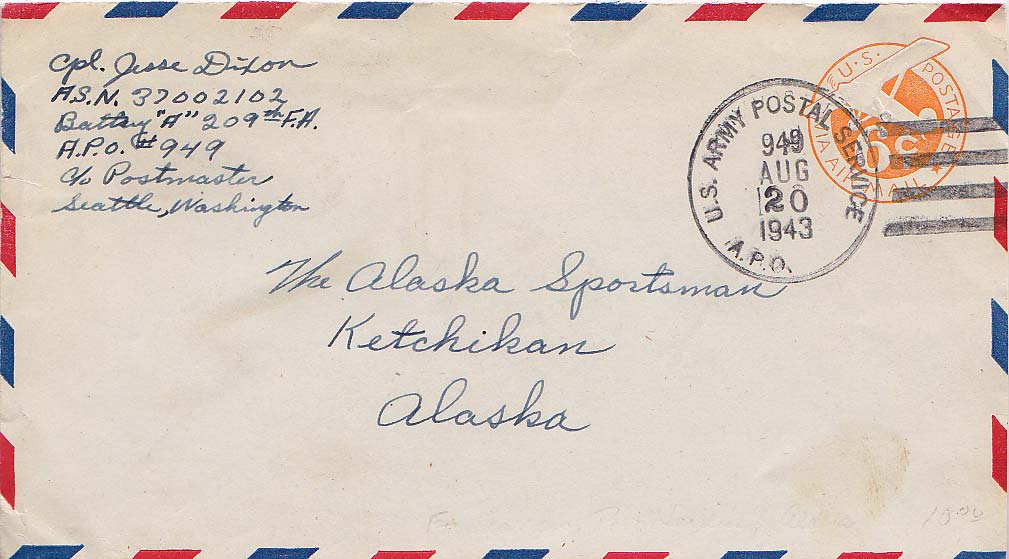 Cpl. Jesse Dixon
A.S.N. 37002102
Battry "A" 209th F.A.
A.P.O. # 949
c/o Postmaster
Seattle, Washington
U.S. ARMY POSTAL SERVICE
949
AUG
20
1943
A.P.O.
U.S. POSTAGE
6c
VIA AIR MAIL
The Alaska Sportsman
Ketchikan
Alaska
10.00